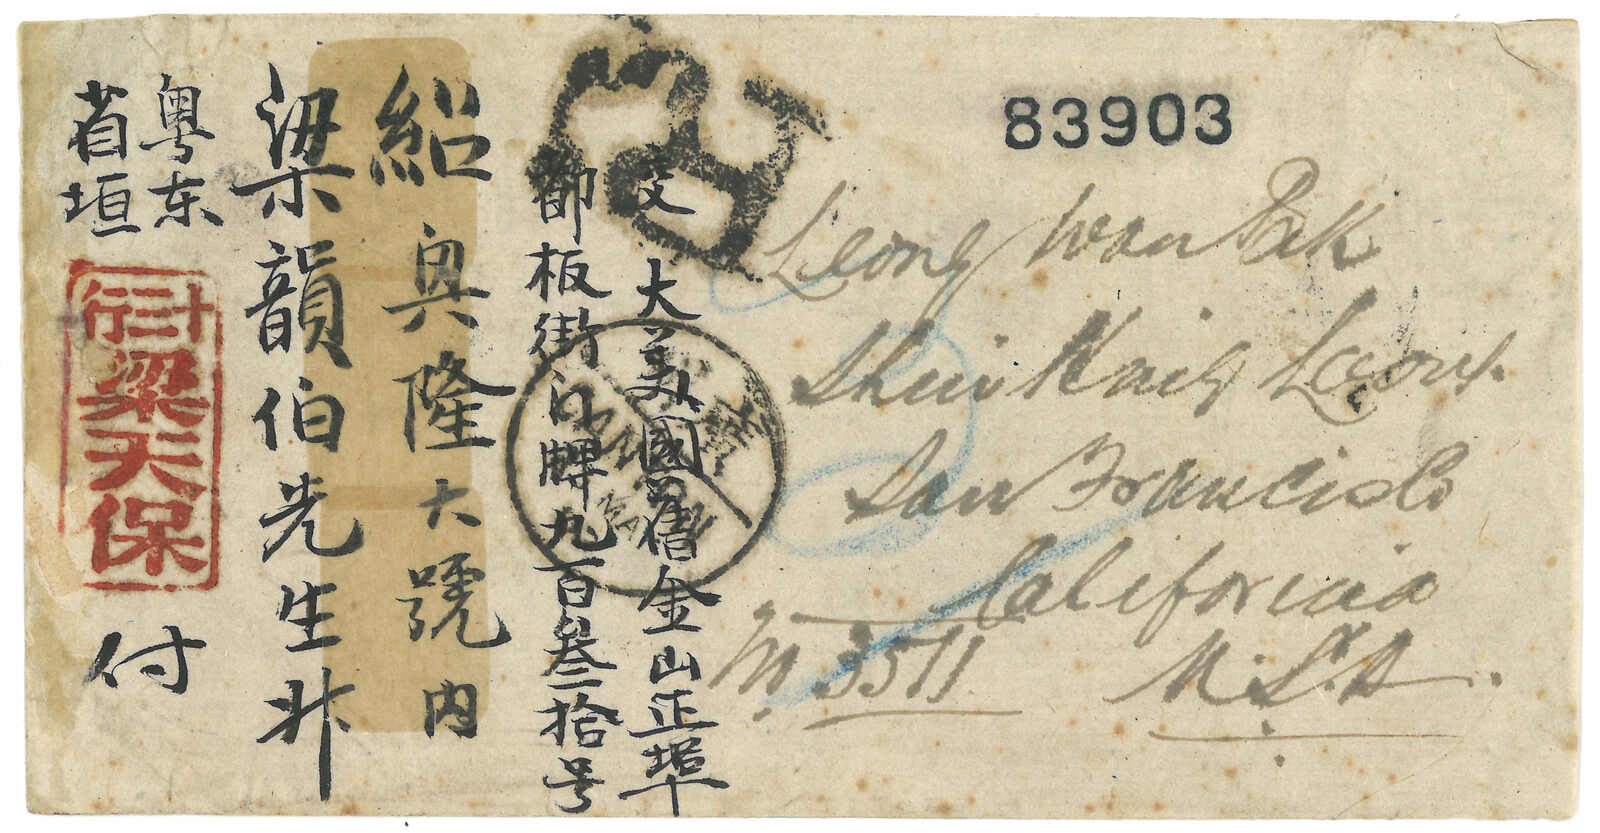 83903
Leong Wan Pak
Shui Hang Leong.
San Francisco
California
3571
U.S.A.
交 大美國舊金山正埠
都板街门牌九百叁拾号
紹興隆大號内
梁韻伯先生升
粤东
省垣
梁天保
付